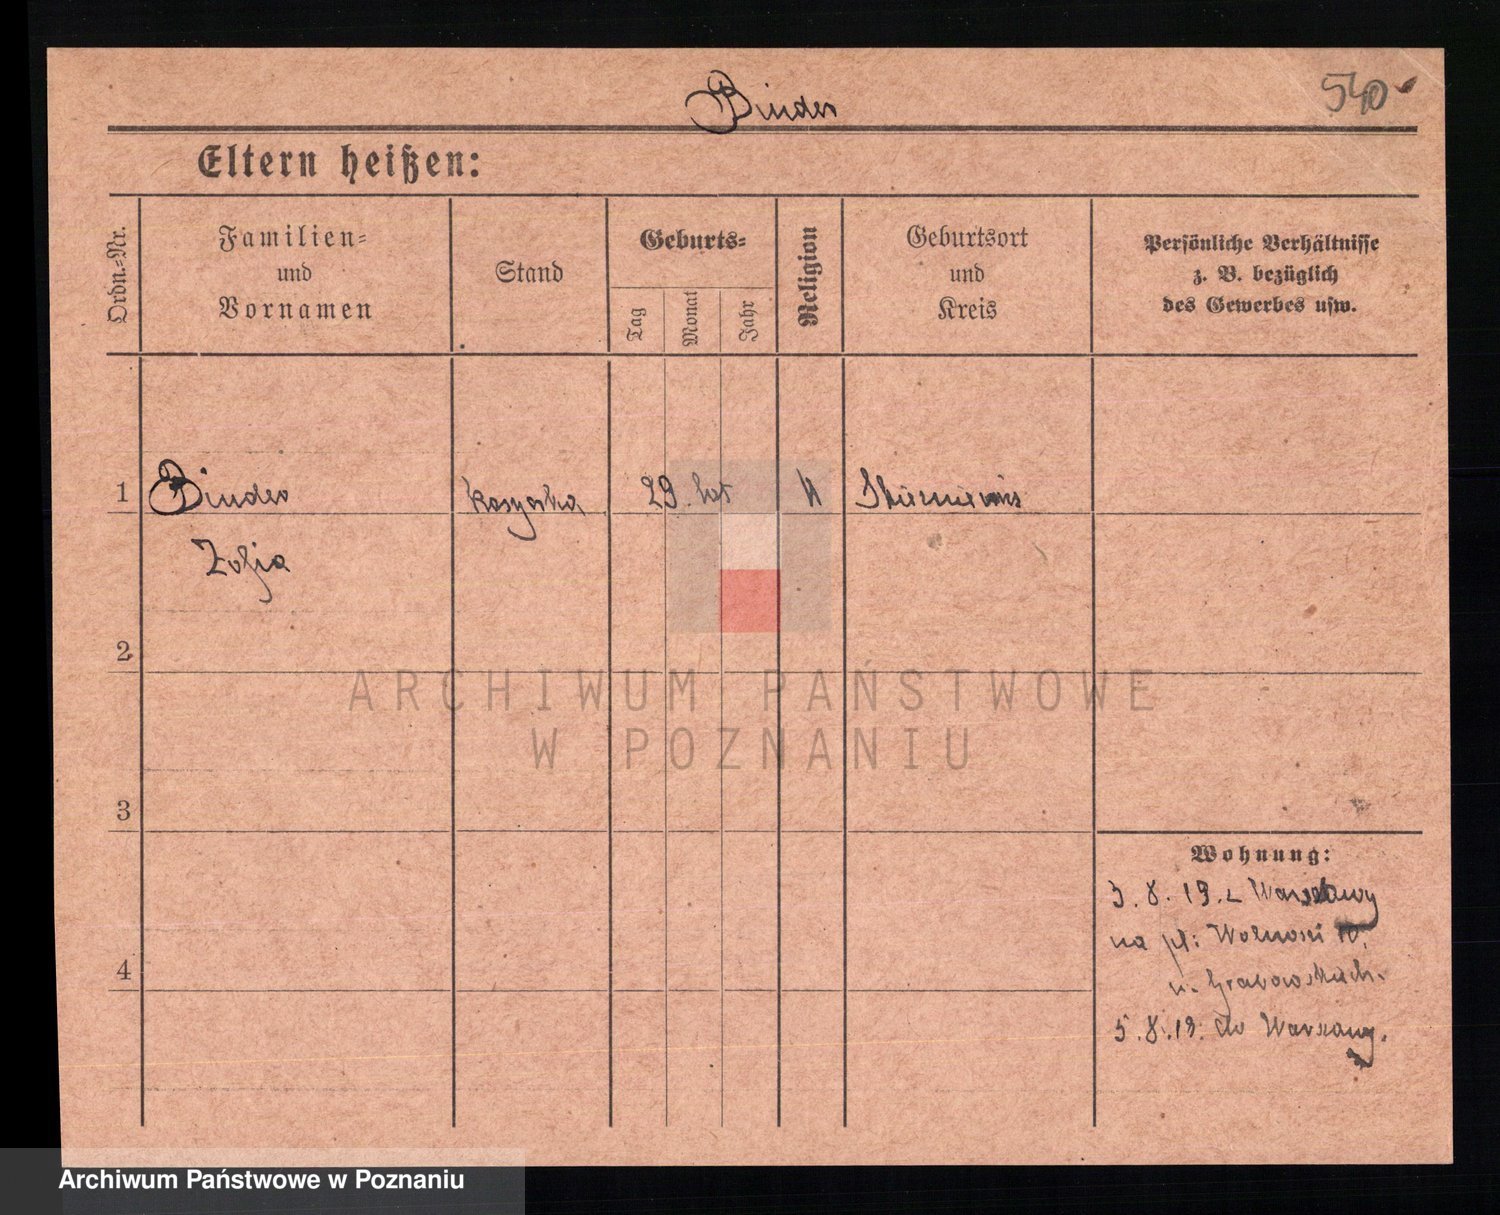 Binder
540
Eltern heißen:
Ordn.=Nr.
Familien=
und
Vornamen
Stand
Geburts=
Tag
Monat
Jahr
Religion
Geburtsort
und
Kreis
Persönliche Verhältnisse
z. B. bezüglich
des Gewerbes usw.
1
Binder
Zofja
29 lat
2
3
4
Wohnung:
3.8.19. z Warszawy
na pl: Wolności 10.
u. Grabowskich.
5.8.19. do Warszawy.
ARCHIWUM PAŃSTWOWE
W POZNANIU
Archiwum Państwowe w Poznaniu